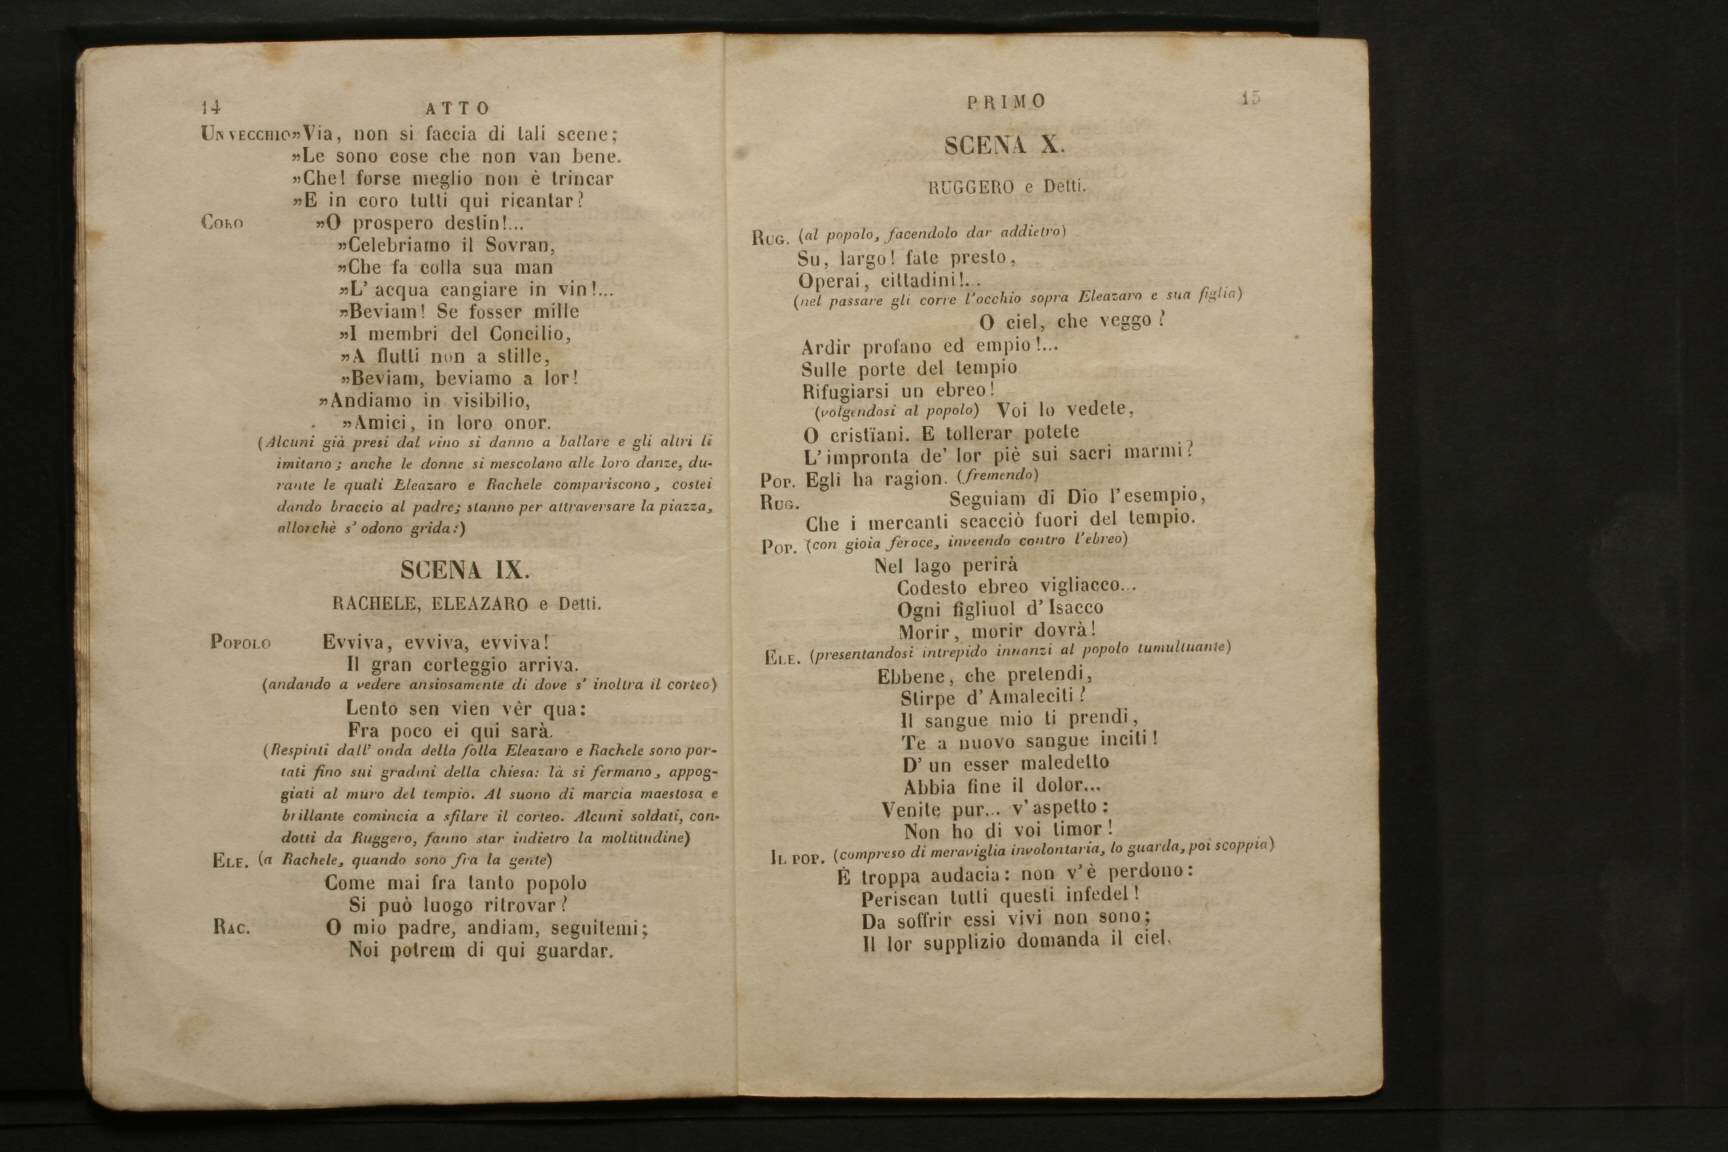 14
ATTO
UN VECCHIO »Via, non si faccia di tali scene;
»Le sono cose che non van bene.
»Che! forse meglio non è trincar
»E in coro tutti qui ricantar?
CORO »O prospero destin!...
»Celebriamo il Sovran,
»Che fa colla sua man
»L' acqua cangiare in vin!...
»Beviam! Se fosser mille
»I membri del Concilio,
»A flutti non a stille,
»Beviam, beviamo a lor!
»Andiamo in visibilio,
»Amici, in loro onor.
(Alcuni già presi dal vino si danno a ballare e gli altri li
imitano; anche le donne si mescolano alle loro danze, du-
rante le quali Eleazaro e Rachele compariscono, costei
dando braccio al padre; stanno per attraversare la piazza,
allorchè s' odono grida:)
SCENA IX.
RACHELE, ELEAZARO e Detti.
POPOLO Evviva, evviva, evviva!
Il gran corteggio arriva.
(andando a vedere ansiosamente di dove s' inoltra il corteo)
Lento sen vien vêr qua:
Fra poco ei qui sarà.
(Respinti dall' onda della folla Eleazaro e Rachele sono por-
tati fino sui gradini della chiesa: là si fermano, appog-
giati al muro del tempio. Al suono di marcia maestosa e
brillante comincia a sfilare il corteo. Alcuni soldati, con-
dotti da Ruggero, fanno star indietro la moltitudine)
ELE. (a Rachele, quando sono fra la gente)
Come mai fra tanto popolo
Si può luogo ritrovar?
RAC. O mio padre, andiam, seguitemi;
Noi potrem di qui guardar.
PRIMO
15
SCENA X.
RUGGERO e Detti.
RUG. (al popolo, facendolo dar addietro)
Su, largo! fate presto,
Operai, cittadini!..
(nel passare gli corre l'occhio sopra Eleazaro e sua figlia)
O ciel, che veggo?
Ardir profano ed empio!...
Sulle porte del tempio
Rifugiarsi un ebreo!
(volgendosi al popolo) Voi lo vedete,
O cristïani. E tollerar potete
L'impronta de' lor piè sui sacri marmi?
POP. Egli ha ragion. (fremendo)
RUG. Seguiam di Dio l'esempio,
Che i mercanti scacciò fuori del tempio.
POP. (con gioia feroce, inveendo contro l'ebreo)
Nel lago perirà
Codesto ebreo vigliacco...
Ogni figliuol d'Isacco
Morir, morir dovrà!
ELE. (presentandosi intrepido innanzi al popolo tumultuante)
Ebbene, che pretendi,
Stirpe d'Amaleciti?
Il sangue mio ti prendi,
Te a nuovo sangue inciti!
D'un esser maledetto
Abbia fine il dolor...
Venite pur... v'aspetto:
Non ho di voi timor!
IL POP. (compreso di meraviglia involontaria, lo guarda, poi scoppia)
È troppa audacia: non v'è perdono:
Periscan tutti questi infedel!
Da soffrir essi vivi non sono;
Il lor supplizio domanda il ciel.